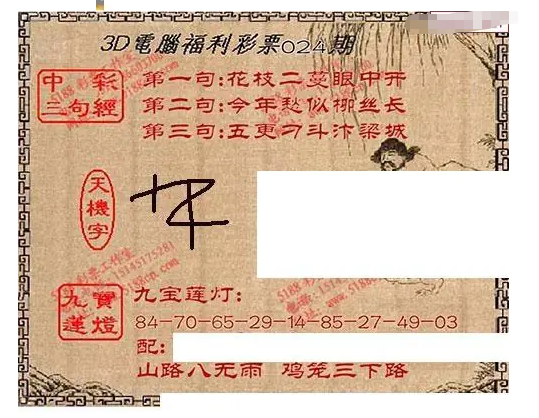 3D電腦福利彩票024期
中彩三句經
第一句:花枝二蔓眼中开
第二句:今年愁似柳丝长
第三句:五更刁斗汴梁城
天機字
九寶蓮燈
九宝莲灯:
84-70-65-29-14-85-27-49-03
配:
山路八无雨 鸡笼三下路